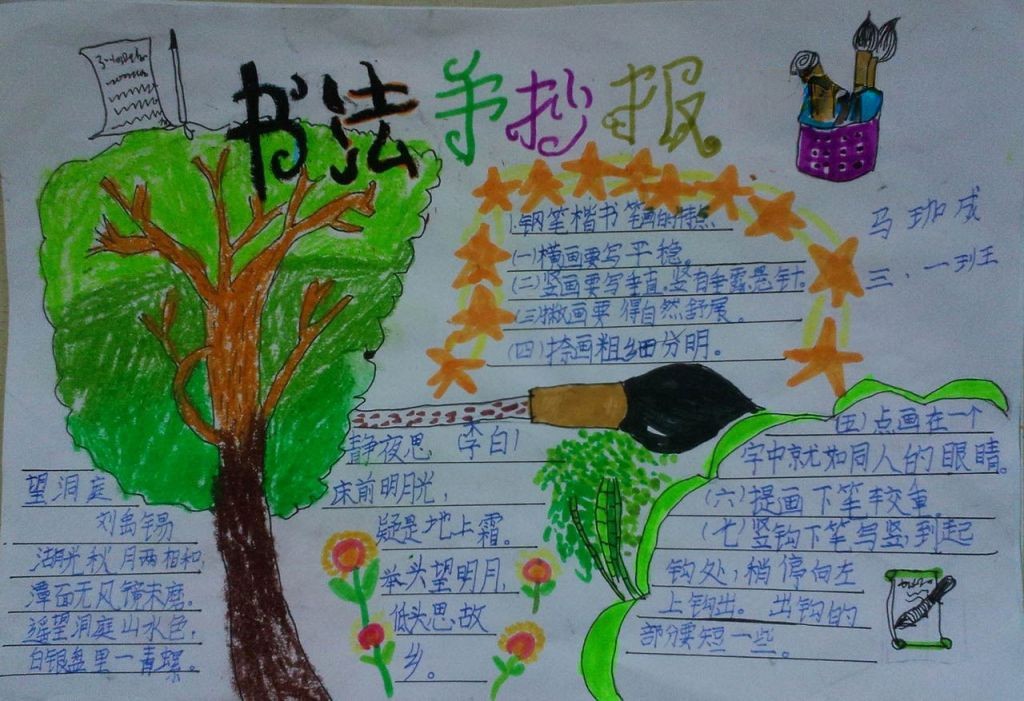 书法手抄报
马珈成
三.一班
1.钢笔楷书笔画的特点
(一)横画要写平稳。
(二)竖画要写垂直.竖有垂露悬针。
(三)撇画要 得自然舒展。
(四)捺画粗细分明。
(五)点画在一个
字中就如同人的眼睛。
(六)提画下笔较重
(七)竖钩下笔写竖,到起
钩处,稍停向左
上钩出。出钩的
部分要短一些。
静夜思 (李白)
床前明月光,
疑是地上霜。
举头望明月,
低头思故
乡。
望洞庭
刘禹锡
湖光秋月两相和,
潭面无风镜未磨.
遥望洞庭山水色,
白银盘里一青螺。